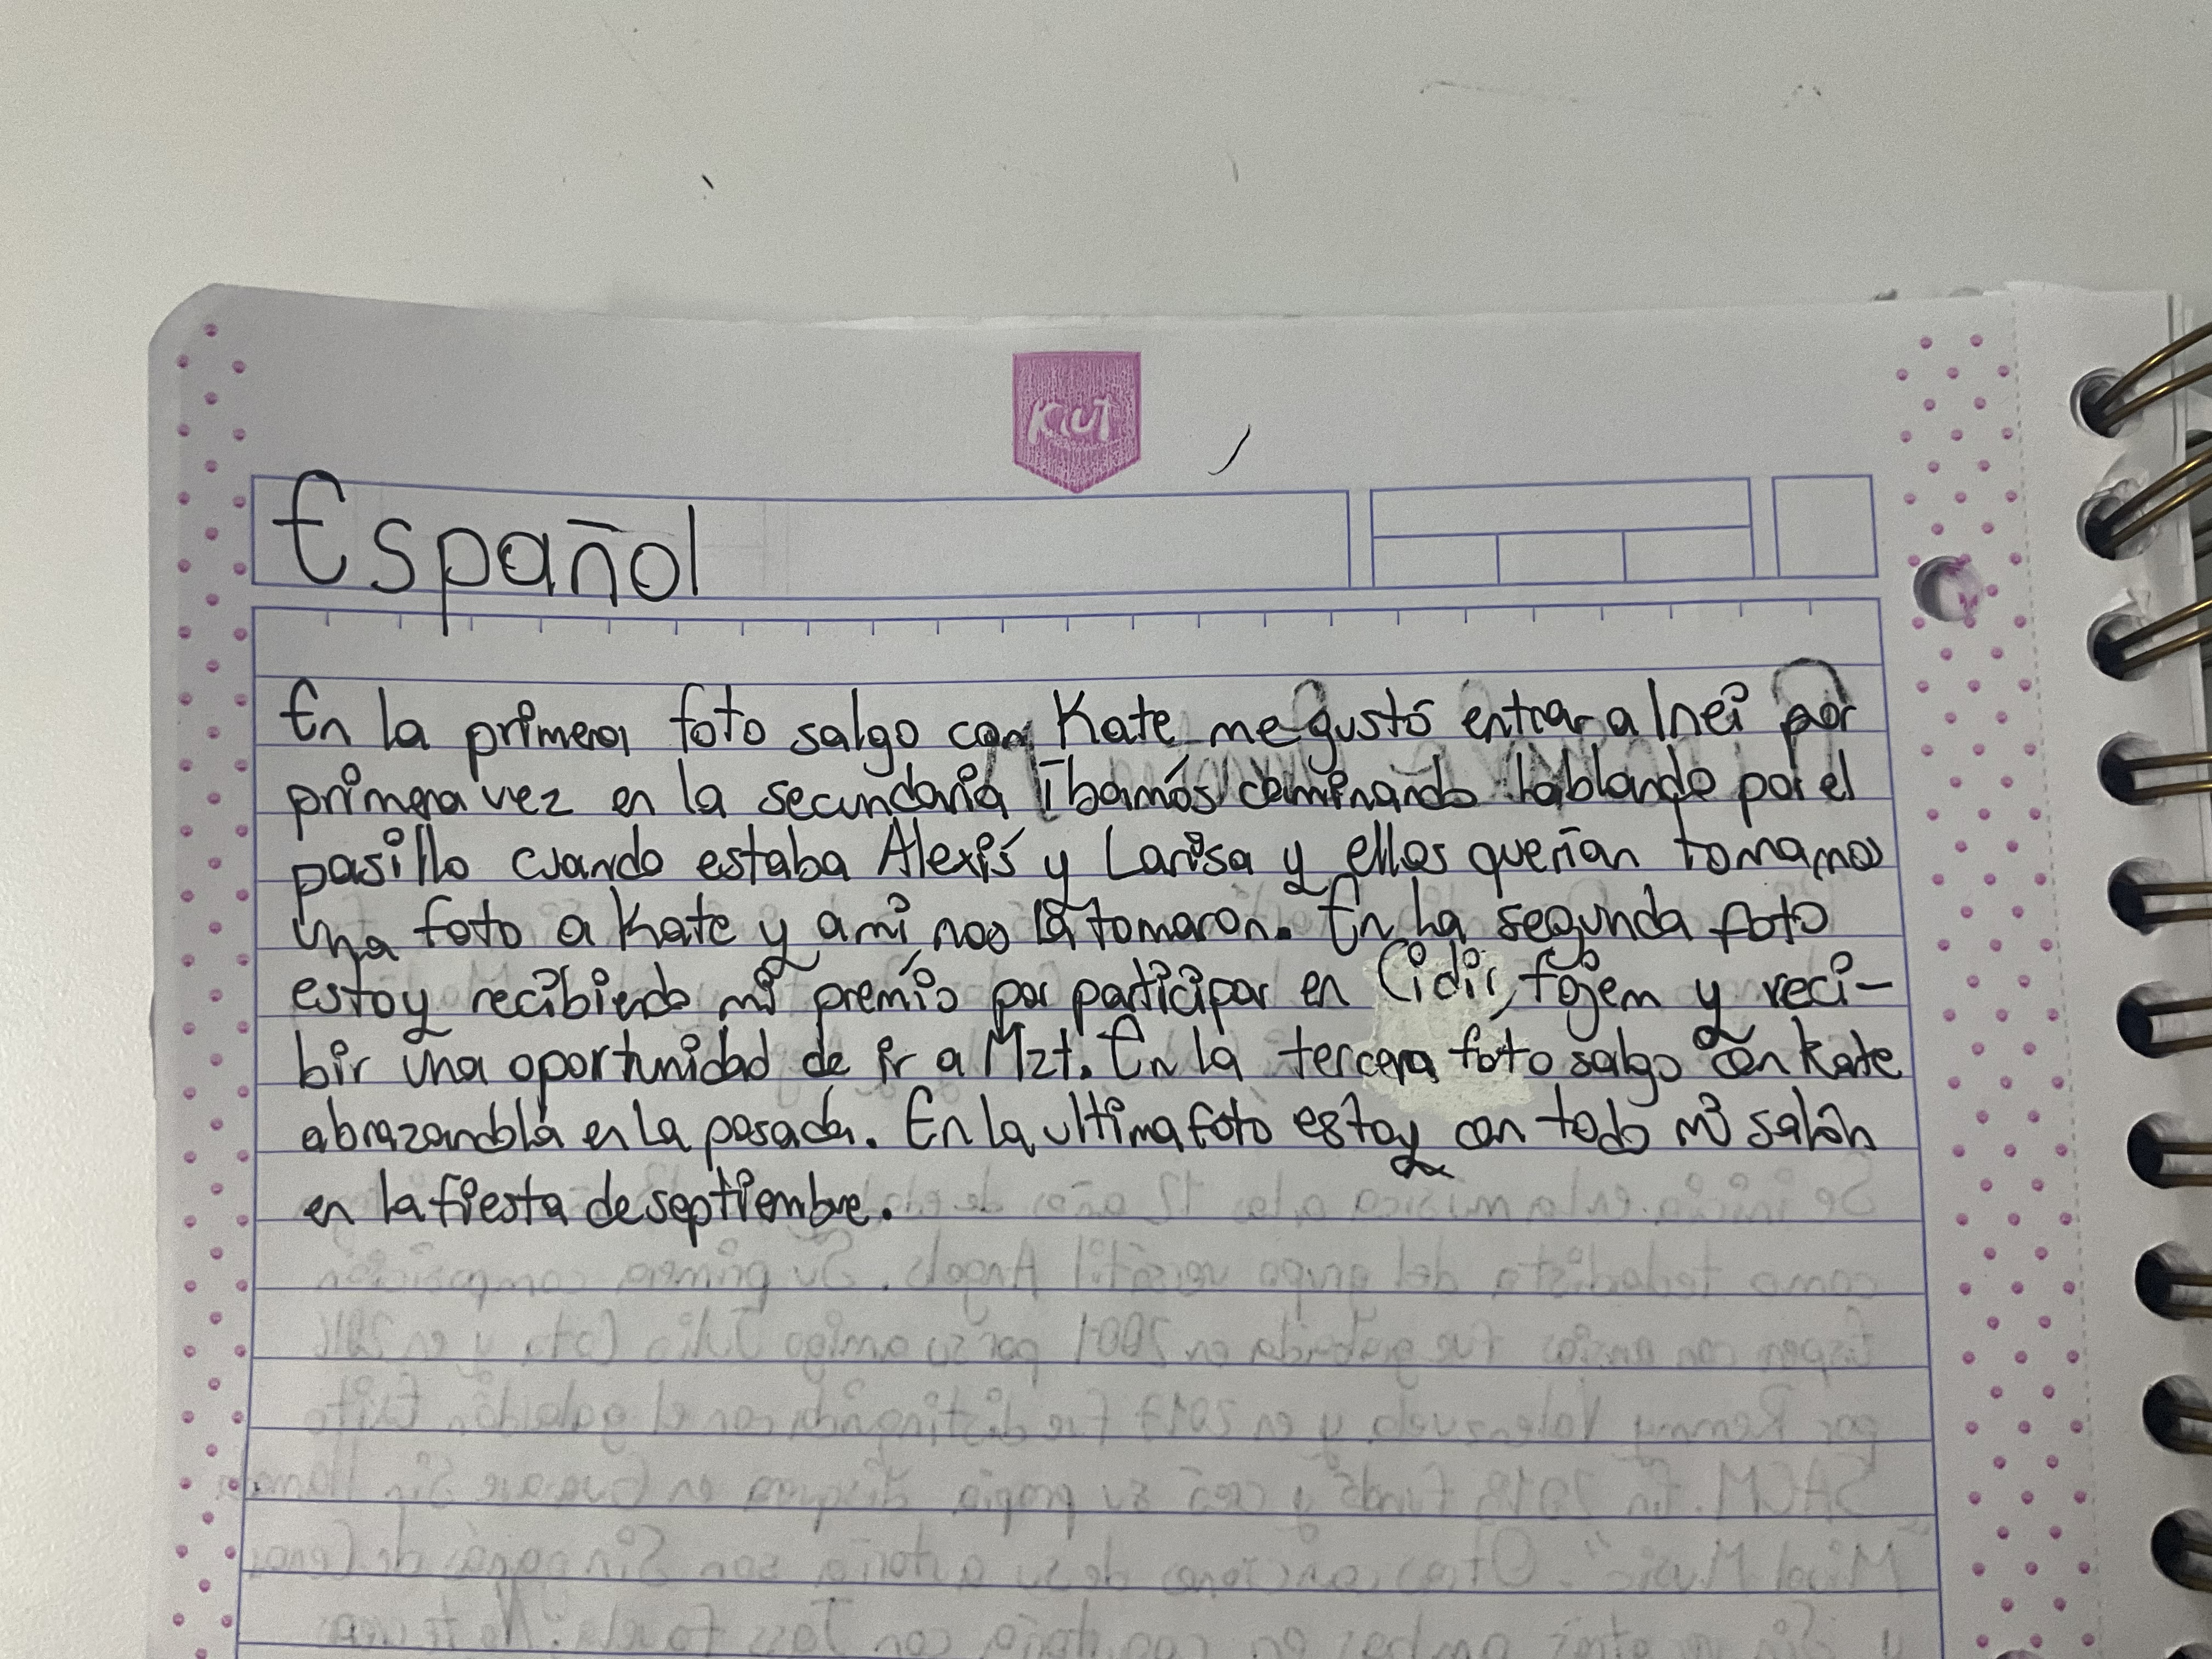 Kiut
Español
En la primera foto salgo con Kate me gustó entrar a Inei por
primera vez en la secundaria íbamos caminando hablando por el
pasillo cuando estaba Alexis y Larisa y ellos querían tomarnos
una foto a Kate y a mi nos la tomaron. En La segunda foto
estoy recibiendo mi premio por participar en Cidir, fojem y reci-
bir una oportunidad de ir a Mzt. En la tercera foto salgo con Kate
abrazandola en la posada. En la ultima foto estoy con todo mi salón
en la fiesta de septiembre.